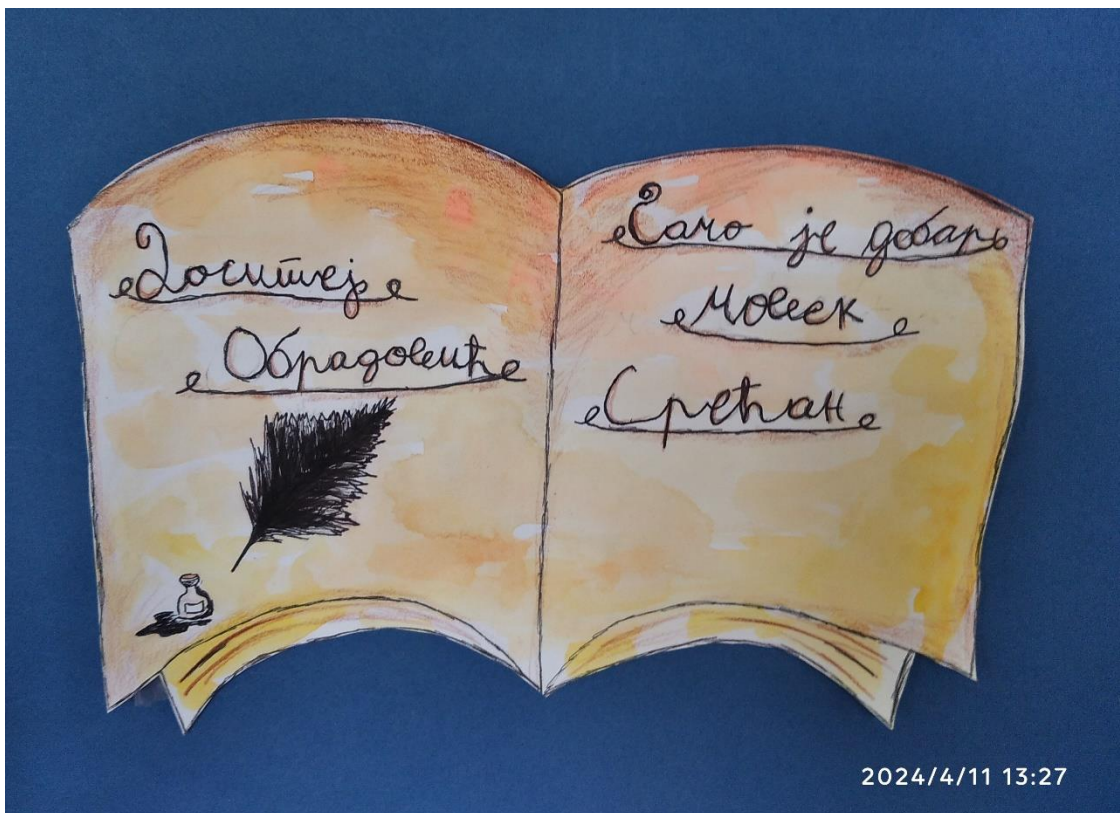 Доситеј
Обрадовић
Само је добаръ
човек
Срећан
2024/4/11 13:27